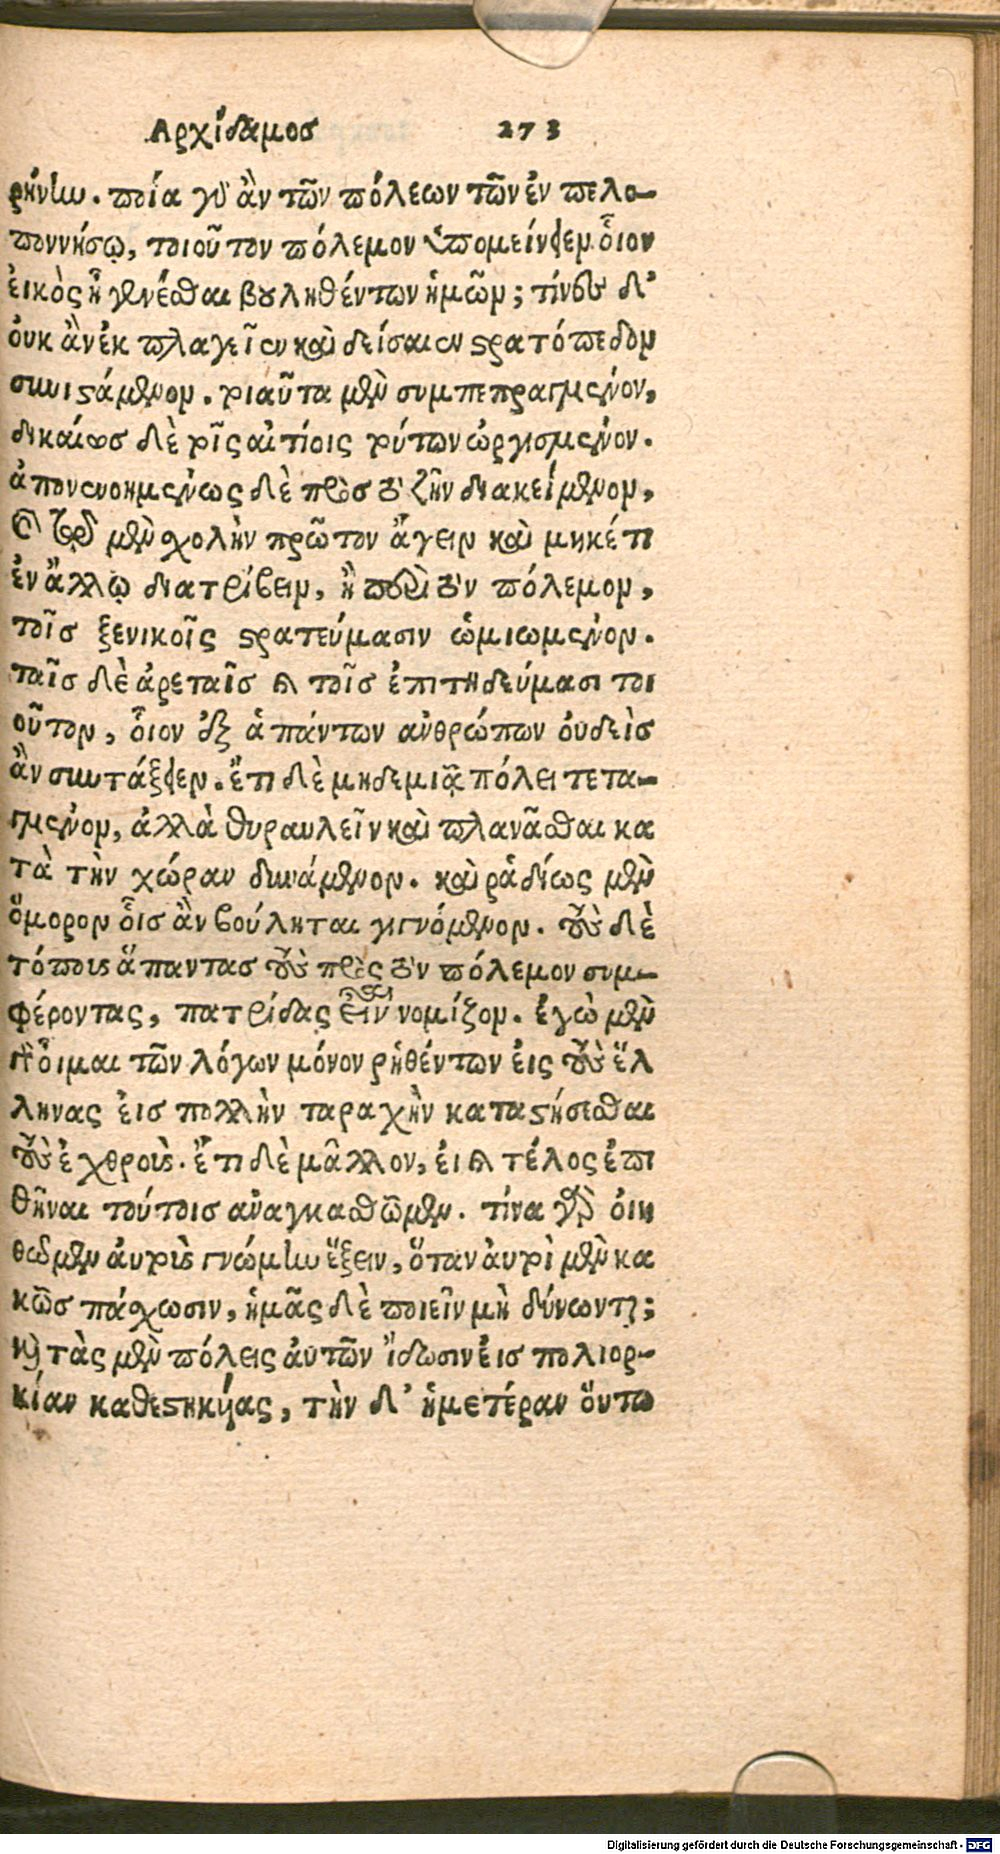 Αρχίδαμοσ 273
ρήνην. ποία γὰρ ἂν τῶν πόλεων τῶν ἐν πελο-
ποννήσῳ, τοιοῦτον πόλεμον ὑπομείνειεν ὅιον
ἐικὸς ἦ γενέσθαι βουληθέντων ἡμῶν; τίνες δ᾽
ὀυκ ἂν ἐκπλαγεῖεν καὶ δείσαιεν στρατόπεδον
συνιστάμενον. τοιαῦτα μὲν συμπεπραγμένον,
δικαίως δὲ τοῖς αἰτίοις τούτων ὠργισμένον.
ἀπονενοημένως δὲ πρὸσ τὸ ζῆν διακείμενον,
καὶ τῷ μὲν σχολὴν πρῶτον ἄγειν καὶ μηκέτι
ἐν ἄλλῳ διατρίβειν, ἢ περὶ τὸν πόλεμον,
τοῖσ ξενικοῖς στρατεύμασιν ὡμοιωμένον.
ταῖσ δὲ ἀρεταῖσ καὶ τοῖσ ἐπιτηδεύμασι τοι
οῦτον, ὅιον ἐξ ἁπάντων ἀνθρώπων ὀυδεὶσ
ἂν συντάξειεν. ἔτι δὲ μηδεμιᾷ πόλει τετα-
γμένον, ἀλλὰ θυραυλεῖν καὶ πλανᾶσθαι κα
τὰ τὴν χώραν δυνάμενον. καὶ ῥᾳδίως μὲν
ὅμορον ὅισ ἂν βούληται γιγνόμενον. τοὺς δὲ
τόπους ἅπαντασ τοὺς πρὸς τὸν πόλεμον συμ-
φέροντας, πατρίδας εἶναι νομίζον. ἐγὼ μὲν
γὰρ ὅιμαι τῶν λόγων μόνον ῥηθέντων ἐις τοὺς ἕλ
ληνας ἐισ πολλὴν ταραχὴν καταστήσεσθαι
τοὺς ἐχθρούς. ἔτι δὲ μᾶλλον, ἐι καὶ τέλος ἐπι
θῆναι τούτοισ ἀναγκασθῶμεν. τίνα γὰρ ὀιη
θῶμεν ἀυτοὺς γνώμην ἕξειν, ὅταν ἀυτοὶ μὲν κα
κῶσ πάσχωσιν, ἡμᾶς δὲ ποιεῖν μὴ δύνωνται;
καὶ τὰς μὲν πόλεις ἀυτῶν ἴδωσιν ἐισ πολιορ-
κίαν καθεστηκυίας, τὴν δ᾽ ἡμετέραν ὅυτω
Digitalisierung gefördert durch die Deutsche Forschungsgemeinschaft - DFG